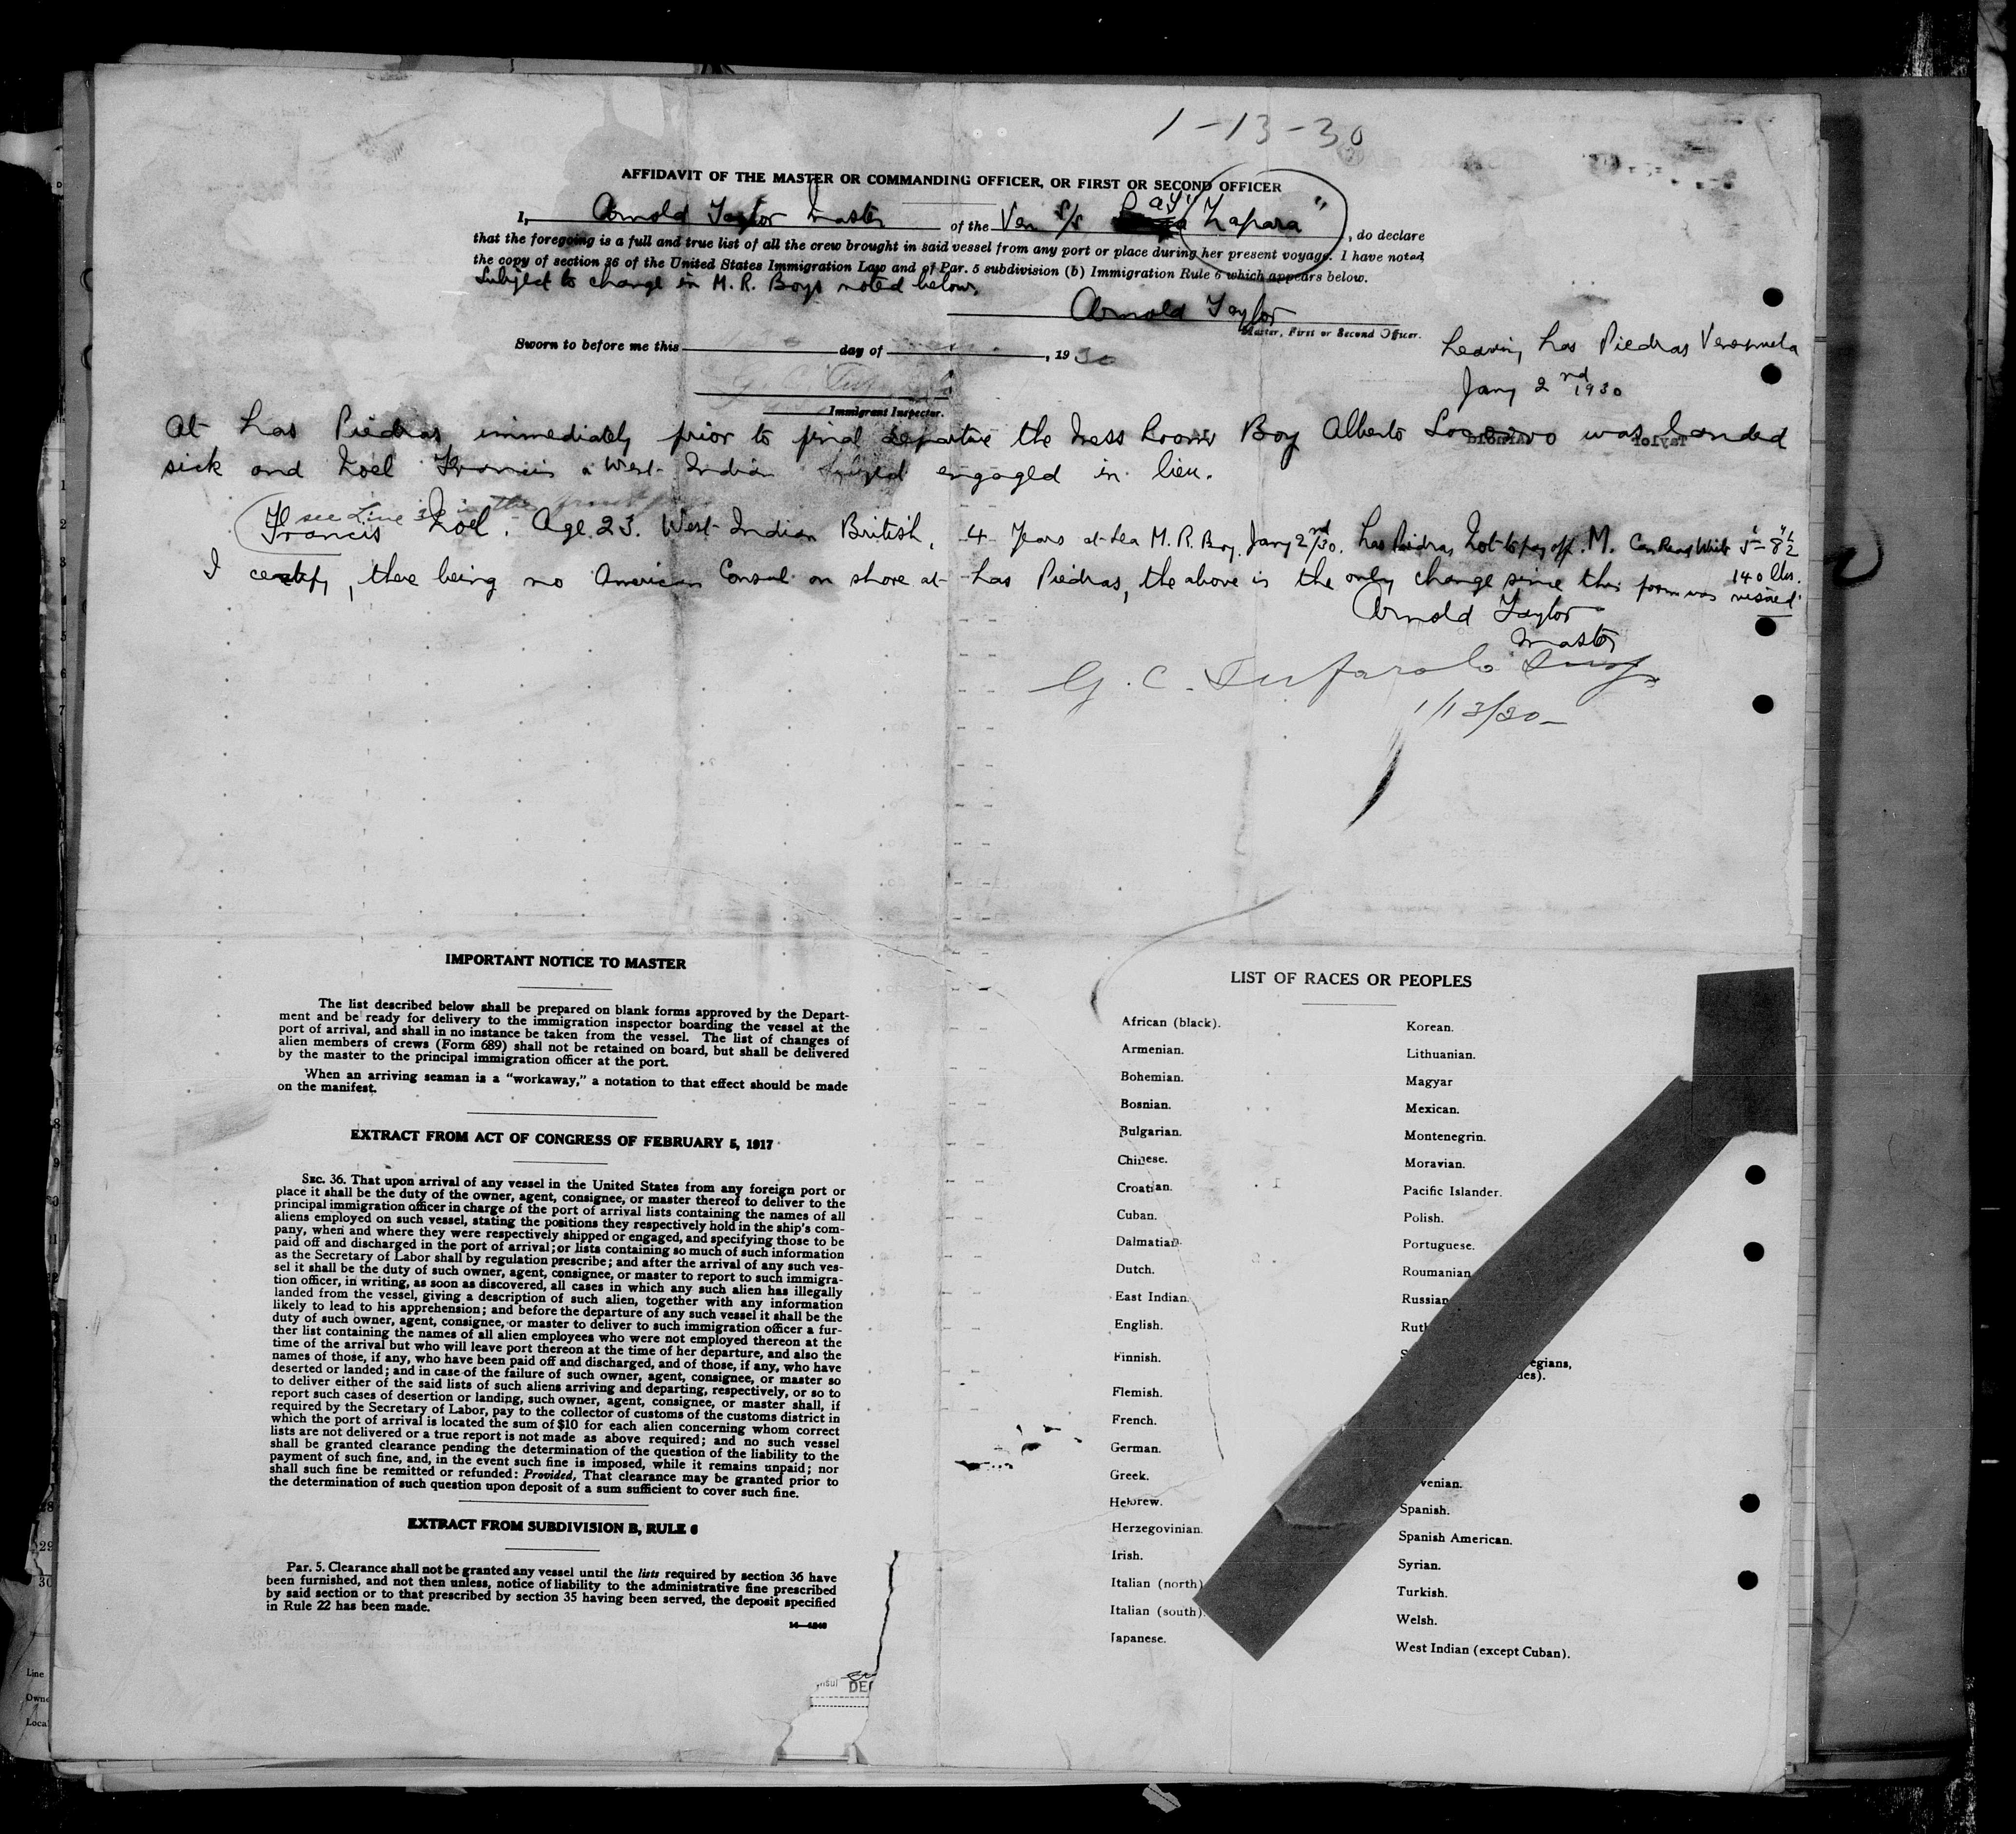 1-13-30
AFFIDAVIT OF THE MASTER OR COMMANDING OFFICER, OR FIRST OR SECOND OFFICER
I, Arnold Taylor Master of the Ven S/S "Zapara", do declare
that the foregoing is a full and true list of all the crew brought in said vessel from any port or place during her present voyage. I have noted
the copy of section 36 of the United States Immigration Law and of Par. 5 subdivision (b) Immigration Rule 6 which appears below.
Subject to change in M. R. Boys noted below.
Arnold Taylor
Master, First or Second Officer.
Sworn to before me this day of , 1930
Immigrant Inspector.
Leaving Las Piedras Venezuela
Jany 2nd 1930
At Las Piedras, immediately prior to final departure the Mess Room Boy Alberto was landed
sick and Noel Francis a West Indian engaged in lieu.
see Line in the
Francis Noel. Age 23. West Indian British. 4 Years at sea M. R. Boy. Jany 2nd/30. Las Piedras, Not to pay off. M. Can Read Write 5' 8½"
140 lbs.
I certify, there being no American Consul on shore at Las Piedras, the above is the only change since this form was visaed.
Arnold Taylor
Master
G. C. Insp
1/13/30
IMPORTANT NOTICE TO MASTER
The list described below shall be prepared on blank forms approved by the Depart-
ment and be ready for delivery to the immigration inspector boarding the vessel at the
port of arrival, and shall in no instance be taken from the vessel. The list of changes of
alien members of crews (Form 689) shall not be retained on board, but shall be delivered
by the master to the principal immigration officer at the port.
When an arriving seaman is a "workaway," a notation to that effect should be made
on the manifest.
EXTRACT FROM ACT OF CONGRESS OF FEBRUARY 5, 1917
SEC. 36. That upon arrival of any vessel in the United States from any foreign port or
place it shall be the duty of the owner, agent, consignee, or master thereof to deliver to the
principal immigration officer in charge of the port of arrival lists containing the names of all
aliens employed on such vessel, stating the positions they respectively hold in the ship's com-
pany, when and where they were respectively shipped or engaged, and specifying those to be
paid off and discharged in the port of arrival; or lists containing so much of such information
as the Secretary of Labor shall by regulation prescribe; and after the arrival of any such ves-
sel it shall be the duty of such owner, agent, consignee, or master to report to such immigra-
tion officer, in writing, as soon as discovered, all cases in which any such alien has illegally
landed from the vessel, giving a description of such alien, together with any information
likely to lead to his apprehension; and before the departure of any such vessel it shall be the
duty of such owner, agent, consignee, or master to deliver to such immigration officer a fur-
ther list containing the names of all alien employees who were not employed thereon at the
time of the arrival but who will leave port thereon at the time of her departure, and also the
names of those, if any, who have been paid off and discharged, and of those, if any, who have
deserted or landed; and in case of the failure of such owner, agent, consignee, or master so
to deliver either of the said lists of such aliens arriving and departing, respectively, or so to
report such cases of desertion or landing, such owner, agent, consignee, or master shall, if
required by the Secretary of Labor, pay to the collector of customs of the customs district in
which the port of arrival is located the sum of $10 for each alien concerning whom correct
lists are not delivered or a true report is not made as above required; and no such vessel
shall be granted clearance pending the determination of the question of the liability to the
payment of such fine, and, in the event such fine is imposed, while it remains unpaid; nor
shall such fine be remitted or refunded: Provided, That clearance may be granted prior to
the determination of such question upon deposit of a sum sufficient to cover such fine.
EXTRACT FROM SUBDIVISION B, RULE 6
Par. 5. Clearance shall not be granted any vessel until the lists required by section 36 have
been furnished, and not then unless, notice of liability to the administrative fine prescribed
by said section or to that prescribed by section 35 having been served, the deposit specified
in Rule 22 has been made.
LIST OF RACES OR PEOPLES
African (black).
Armenian.
Bohemian.
Bosnian.
Bulgarian.
Chinese.
Croatian.
Cuban.
Dalmatian.
Dutch.
East Indian.
English.
Finnish.
Flemish.
French.
German.
Greek.
Hebrew.
Herzegovinian.
Irish.
Italian (north)
Italian (south).
Japanese.
Korean.
Lithuanian.
Magyar
Mexican.
Montenegrin.
Moravian.
Pacific Islander.
Polish.
Portuguese.
Roumanian
Russian
Ruth
egians,
des).
venian.
Spanish.
Spanish American.
Syrian.
Turkish.
Welsh.
West Indian (except Cuban).
Line
Owne
Loca